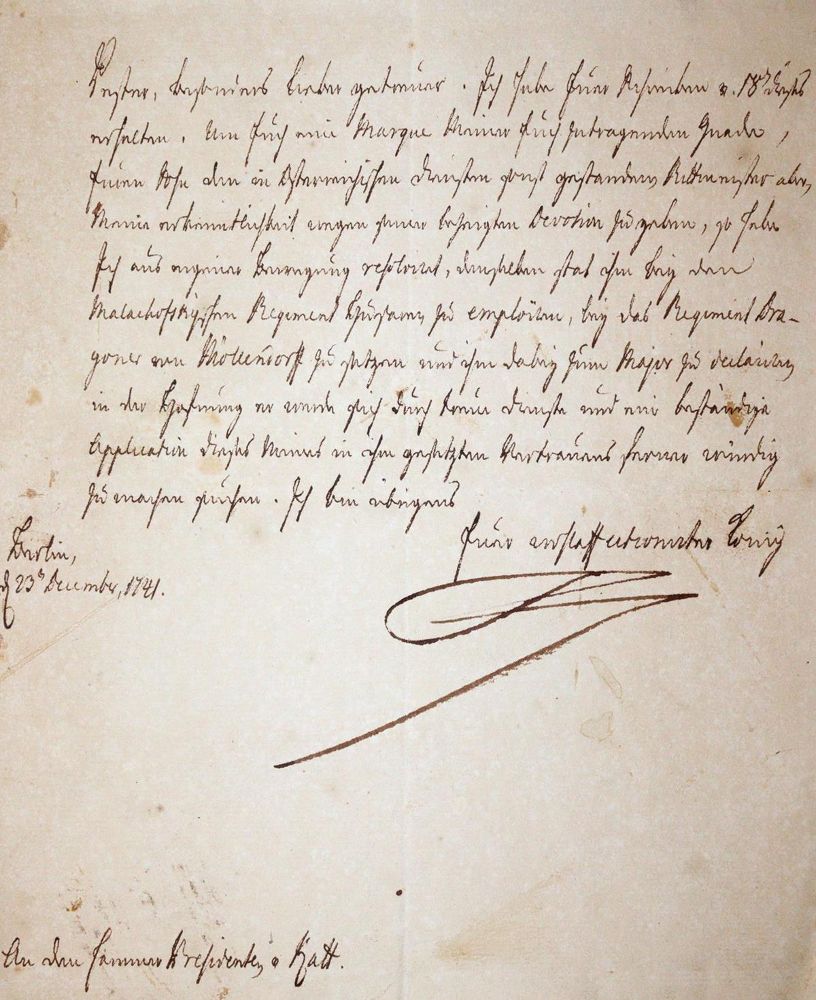 Vester, besonders lieber getreuer. Ich habe Euer Schreiben v. 18t dieses
erhalten. Um Euch eine Marque Meiner Euch zutragenden Gnade,
Euren Sohn den in Österreichischen Diensten sonst gestandenen Rittmeister aber,
Meine erkenntlichkeit wegen seiner bezeigten Devotion zu geben, so habe
Ich aus eigener Bewegung resolviret, denselben stat ihn bey den
Malachofskyschen Regiment Husaren zu emploiren, bey das Regiment Dra-
goner von Möllendorff zu setzen und ihn dabey zum Major zu declariren,
in der Hofnung er werde sich durch treue Dienste und eine beständige
Application dieses Meines in ihn gesetzten Vertrauens ferner würdig
zu machen suchen. Ich bin übrigens
Euer wohlaffectionirter König
Berlin,
d 23t December, 1741.
An den Cammer Presidenten v Katt.